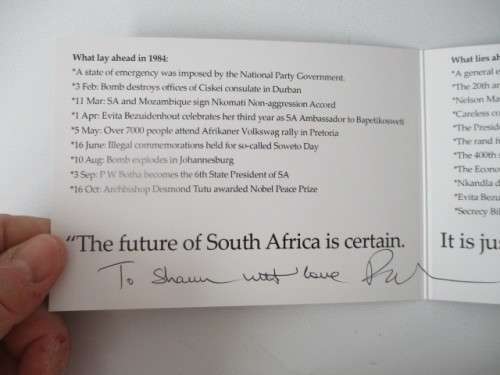 What lay ahead in 1984:
*A state of emergency was imposed by the National Party Government.
*3 Feb: Bomb destroys offices of Ciskei consulate in Durban
*11 Mar: SA and Mozambique sign Nkomati Non-aggression Accord
*1 Apr: Evita Bezuidenhout celebrates her third year as SA Ambassador to Bapetikosweti
*5 May: Over 7000 people attend Afrikaner Volkswag rally in Pretoria
*16 June: Illegal commemorations held for so-called Soweto Day
*10 Aug: Bomb explodes in Johannesburg
*3 Sep: P W Botha becomes the 6th State President of SA
*16 Oct: Archbishop Desmond Tutu awarded Nobel Peace Prize
"The future of South Africa is certain.
To Shaun with love
What lies
*A general
*The 20th
*Nelson
*Careless
*The
*The rand
*The 400th
*The
*Nkandla
*Evita
*Secrecy
It is